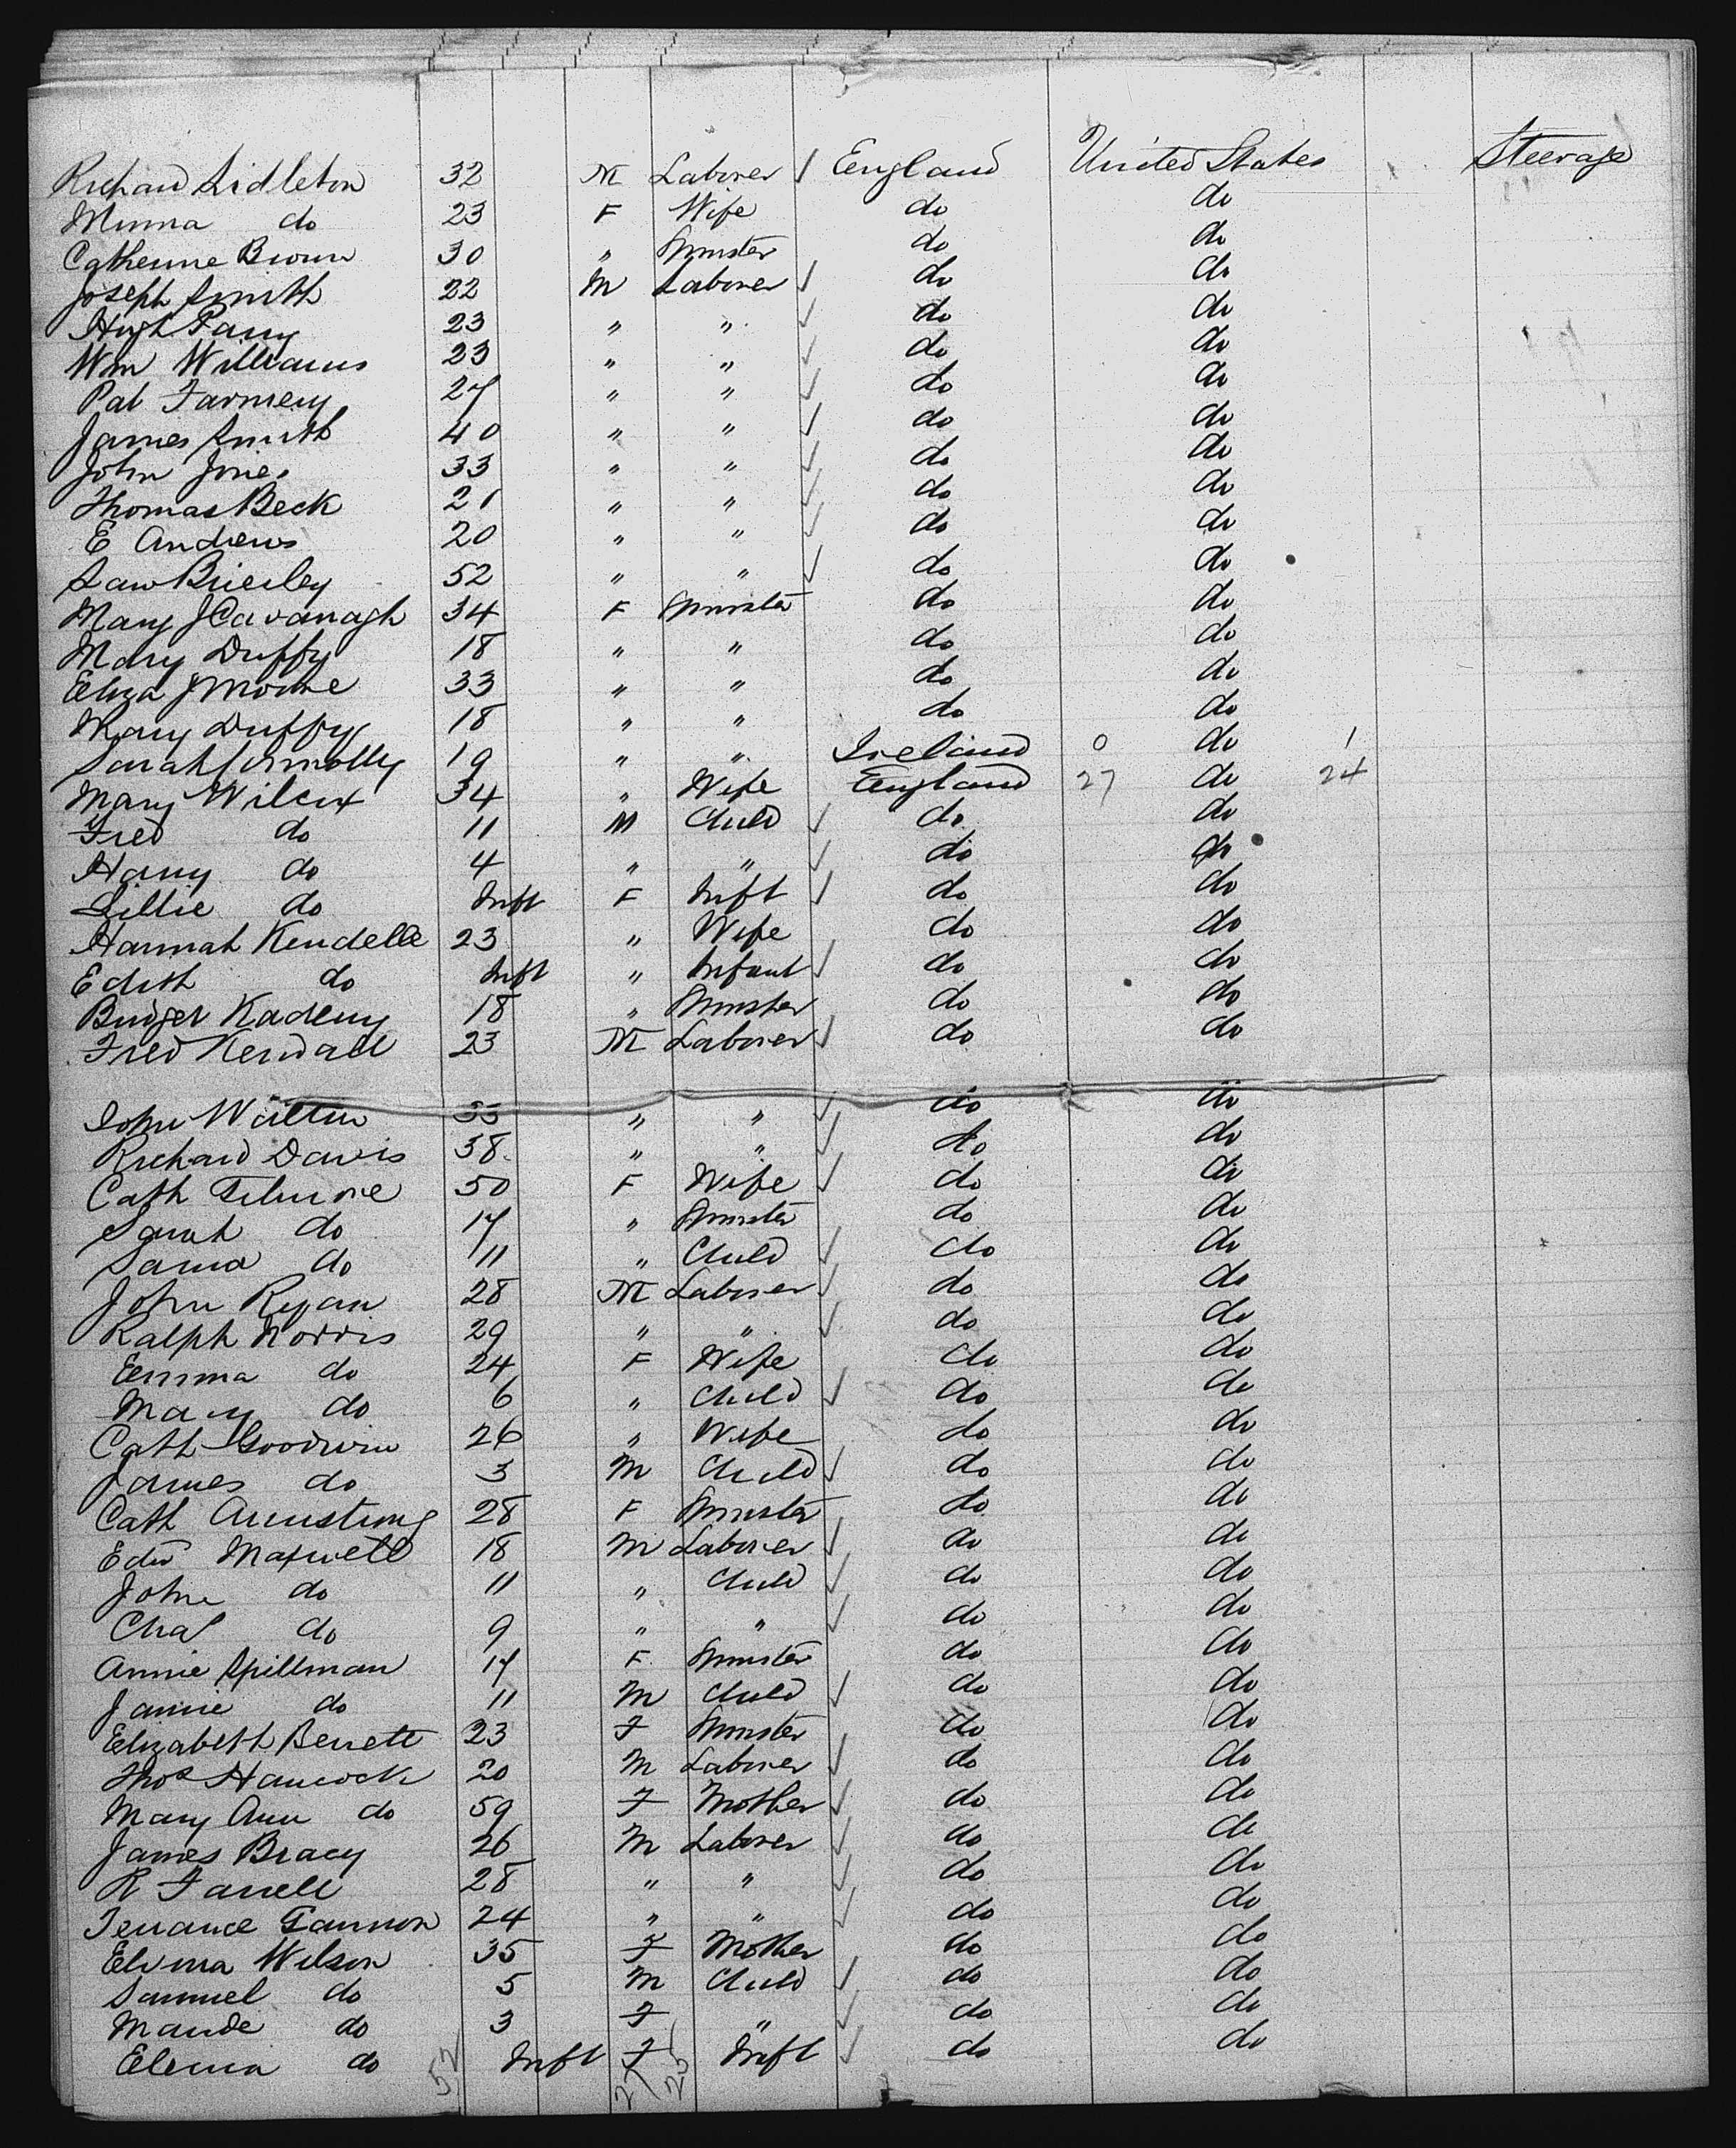 Richard Lidleton 32 M Laborer ✓ England United States Steerage
Minna do 23 F Wife do do
Catherine Brown 30 " Spinster do do
Joseph Smith 22 M Laborer ✓ do do
Hugh Parry 23 " " ✓ do do
Wm Williams 23 " " ✓ do do
Pat Farmery 27 " " ✓ do do
James Smith 40 " " ✓ do do
John Jones 33 " " ✓ do do
Thomas Beck 21 " " ✓ do do
E Andrews 20 " " ✓ do do
Law Brierley 52 " " ✓ do do
Mary J Cavanagh 34 F Spinster do do
Mary Duffy 18 " " do do
Eliza J Moore 33 " " do do
Mary Duffy 18 " " do do
Sarah Connolly 19 " " Ireland 0 do 1
Mary Wilcox 34 " Wife England 27 do 24
Fred do 11 M Child ✓ do do
Harry do 4 " " ✓ do do
Lillie do Inft F Inft ✓ do do
Hannah Kendelle 23 " Wife do do
Edith do Inft " Infant ✓ do do
Bridget Kadeny 18 " Spinster do do
Fred Kendall 23 M Laborer ✓ do do
John 33 " " ✓ do do
Richard Davis 38 " " ✓ do do
Cath Filmore 50 F Wife ✓ do do
Sarah do 17 " Spinster do do
do 11 " Child ✓ do do
John Ryan 28 M Laborer ✓ do do
Ralph Norris 29 " " ✓ do do
Emma do 24 F Wife do do
Mary do 6 " Child ✓ do do
Cath Goodwin 26 " Wife do do
James do 3 M Child ✓ do do
Cath Armstrong 28 F Spinster do do
Edw Maxwell 18 M Laborer ✓ do do
John do 11 " Child ✓ do do
Chas do 9 " " ✓ do do
Annie Spillman 17 F Spinster do do
Jamie do 11 M Child ✓ do do
Elizabeth Benett 23 F Spinster do do
Thos Hancock 20 M Laborer ✓ do do
Mary Ann do 59 F Mother ✓ do do
James Bracy 26 M Laborer ✓ do do
R Farrell 28 " " ✓ do do
Terrance Gannon 24 " " ✓ do do
Elvina Wilson 35 F Mother do do
Samuel do 5 M Child ✓ do do
Maude do 3 F " ✓ do do
do Inft F Inft ✓ do do
52 27 25